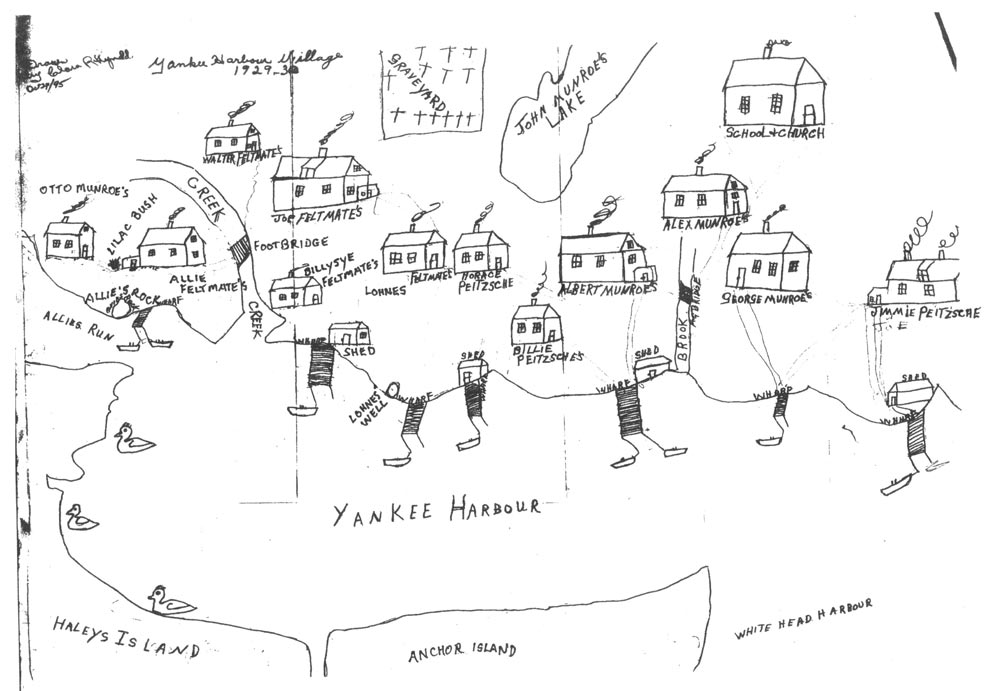 Drawn
by
Oct 29/95
Yankee Harbour Village
1929-30
GRAVEYARD
JOHN MUNROE'S
LAKE
SCHOOL & CHURCH
WALTER FELTMATE'S
JOE FELTMATE'S
ALEX MUNROE'S
OTTO MUNROE'S
LILAC BUSH
CREEK
FOOTBRIDGE
ALLIE
FELTMATE'S
BILLYSYE
FELTMATE'S
LOHNES
FELTMATE'S
HORACE
PEITZSCHE
ALBERT MUNROE'S
GEORGE MUNROE'S
JIMMIE PEITZSCHE
ALLIE'S ROCK
WHARF
ALLIES RUN
CREEK
WHARF
SHED
BILLIE
PEITZSCHE'S
BROOK
BRIDGE
LOHNES
WELL
WHARF
SHED
WHARF
SHED
WHARF
WHARF
SHED
WHARF
YANKEE HARBOUR
HALEYS ISLAND
ANCHOR ISLAND
WHITE HEAD HARBOUR